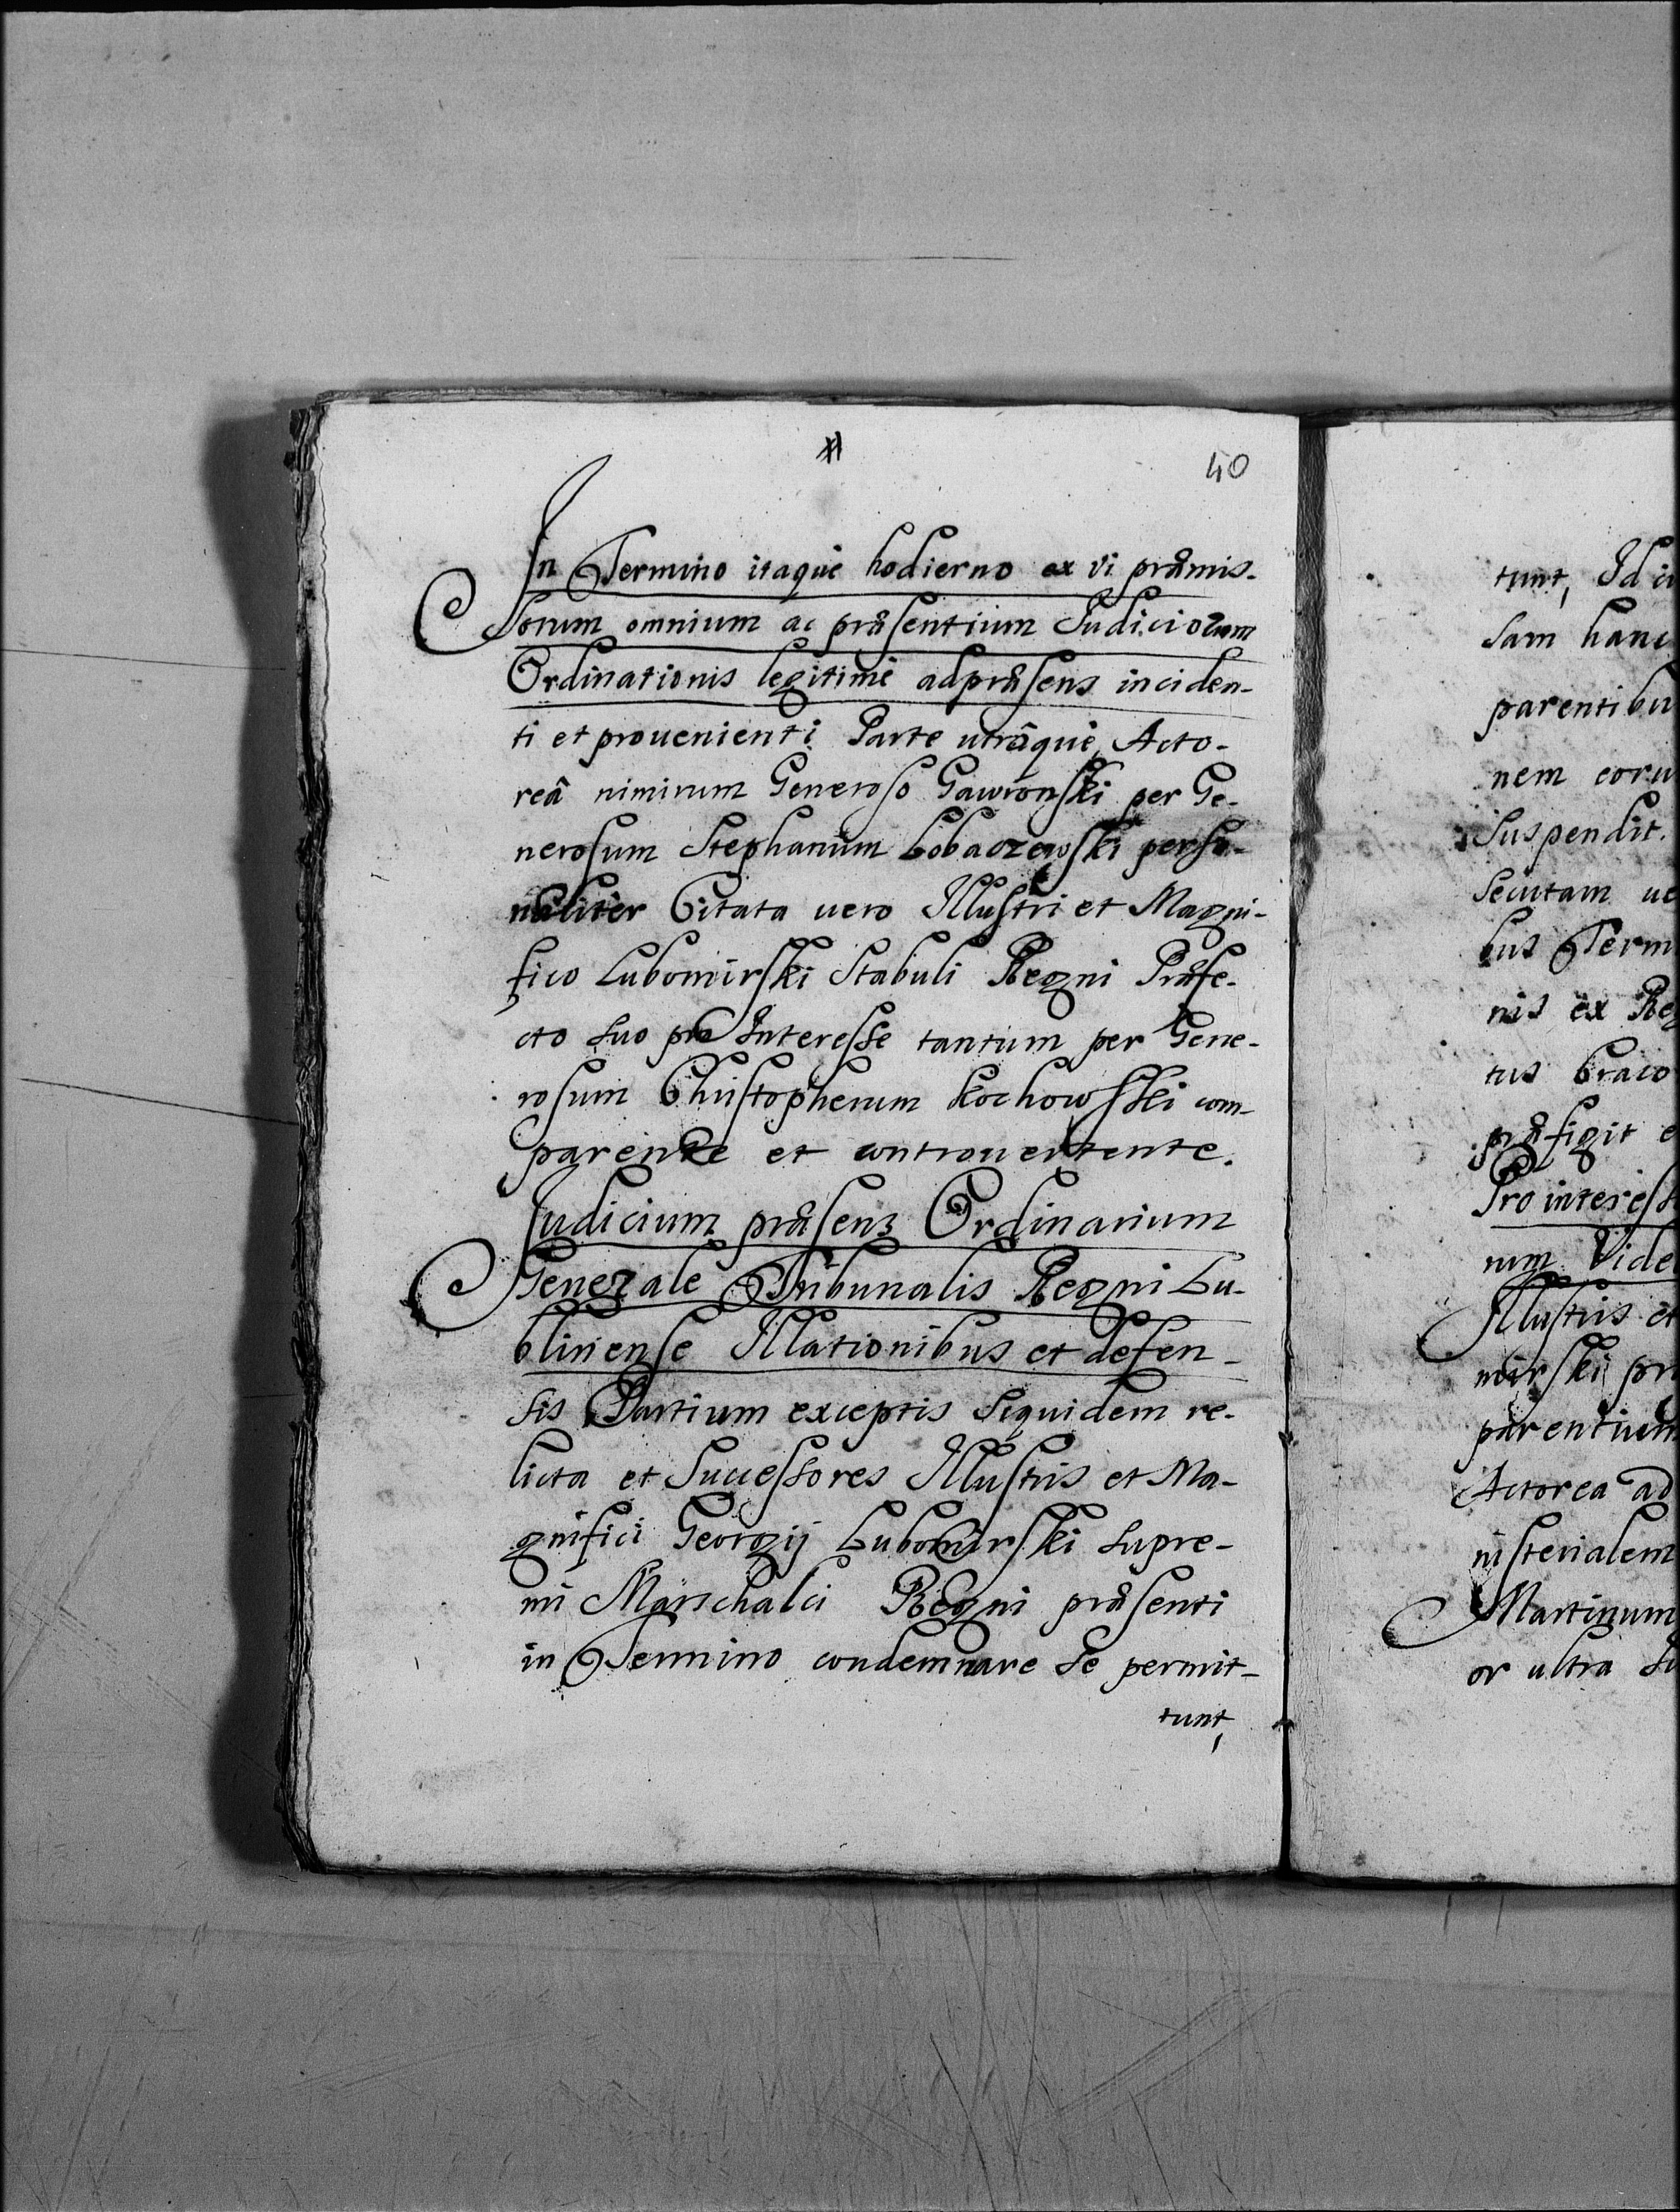 40
In Termino itaque hodierno ex vi præmis-
sorum omnium ac præsentium Judiciorum
Ordinationis legitime adpræsens inciden-
ti et prouenienti Parte utrâque Acto-
reâ nimirum Generoso Gawronski per Ge-
nerosum Stephanum Lobaczewski perso-
naliter Citata uero Illustri et Magni-
fico Lubomirski Stabuli Regni Præfe-
cto suo pro Interesse tantum per Gene-
rosum Christopherum Kochowski com-
parente et controuertente.
Judicium præsens Ordinarium
Generale Tribunalis Regni Lu-
blinense Illationibus et defen-
sis Partium exceptis Siquidem re-
licta et Successores Illustris et Ma-
gnifici Georgij Lubomirski supre-
mi Marschalci Regni præsenti
in Termino condemnare se permit-
tunt,
tunt, Id
sam hanc
parentibu
nem coru
Suspendit.
Secutam ue
bus Term
nis ex Reg
tus Craco
præfigit e
Pro interess
num Vide
Illustris et
mirski pr
parentium
Actorea ad
nisterialem
Martinum
or ultra